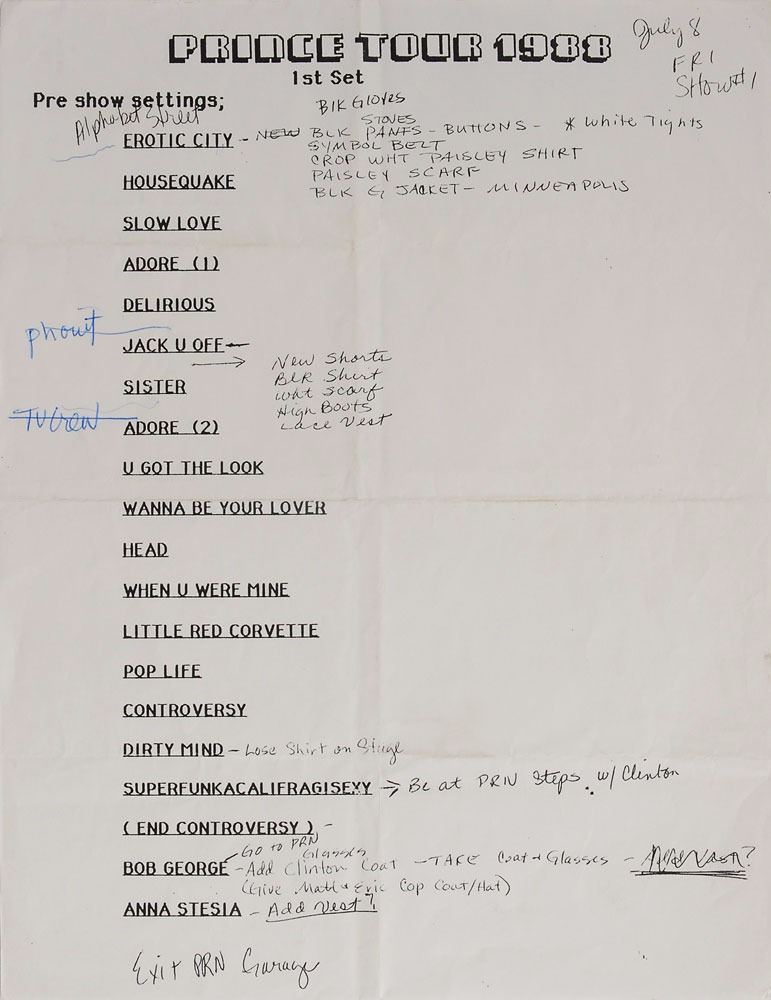 PRINCE TOUR 1988
July 8
FRI
SHOW #1
1st Set
Pre show settings;
Blk Gloves
Alphabet Street
STOVES
EROTIC CITY - NEW BLK PANTS - BUTTONS - * White Tights
SYMBOL BELT
CROP WHT PAISLEY SHIRT
PAISLEY SCARF
HOUSEQUAKE
BLK G JACKET - MINNEAPOLIS
SLOW LOVE
ADORE (1)
DELIRIOUS
JACK U OFF
New Shorts
Blk Shirt
SISTER
wht scarf
High Boots
TV Crew
ADORE (2)
Lace Vest
U GOT THE LOOK
WANNA BE YOUR LOVER
HEAD
WHEN U WERE MINE
LITTLE RED CORVETTE
POP LIFE
CONTROVERSY
DIRTY MIND - Lose Shirt on Stage
SUPERFUNKACALIFRAGISEXY → Be at PRN Steps w/ Clinton
( END CONTROVERSY ) -
GO to PRN
Glasses
BOB GEORGE - Add Clinton Coat - TAKE Coat + Glasses -
(Give Matt + Eric Cop Coat/Hat)
ANNA STESIA - Add Vest?
Exit PRN Garage